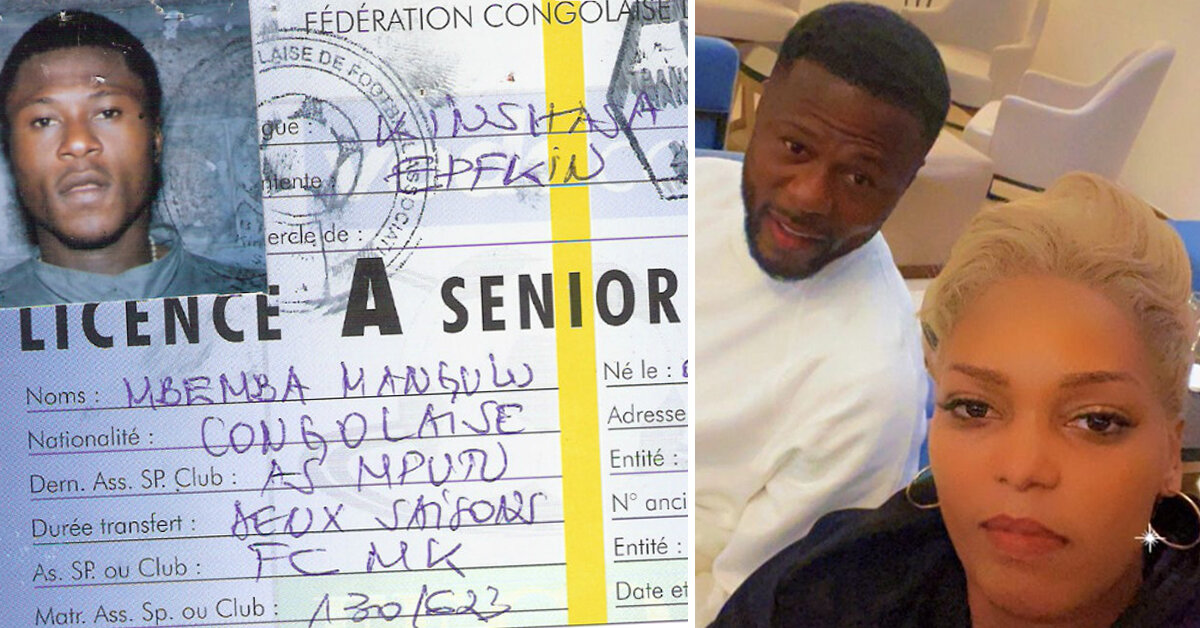 FÉDÉRATION CONGOLAISE
LAISE DE FOOTBALL ASSOCIATI
TRANS
gue : KINSHASA
ntente : EPFKIN
ercle de :
LICENCE A SENIOR
Noms : MBEMBA MANGULU
Né le :
Nationalité : CONGOLAISE
Adresse
Dern. Ass. SP. Club : AS MPUTU
Entité :
Durée transfert : DEUX SAISONS
N° anci
As. SP. ou Club : FC MK
Entité :
Matr. Ass. Sp. ou Club : 1300/623
Date et